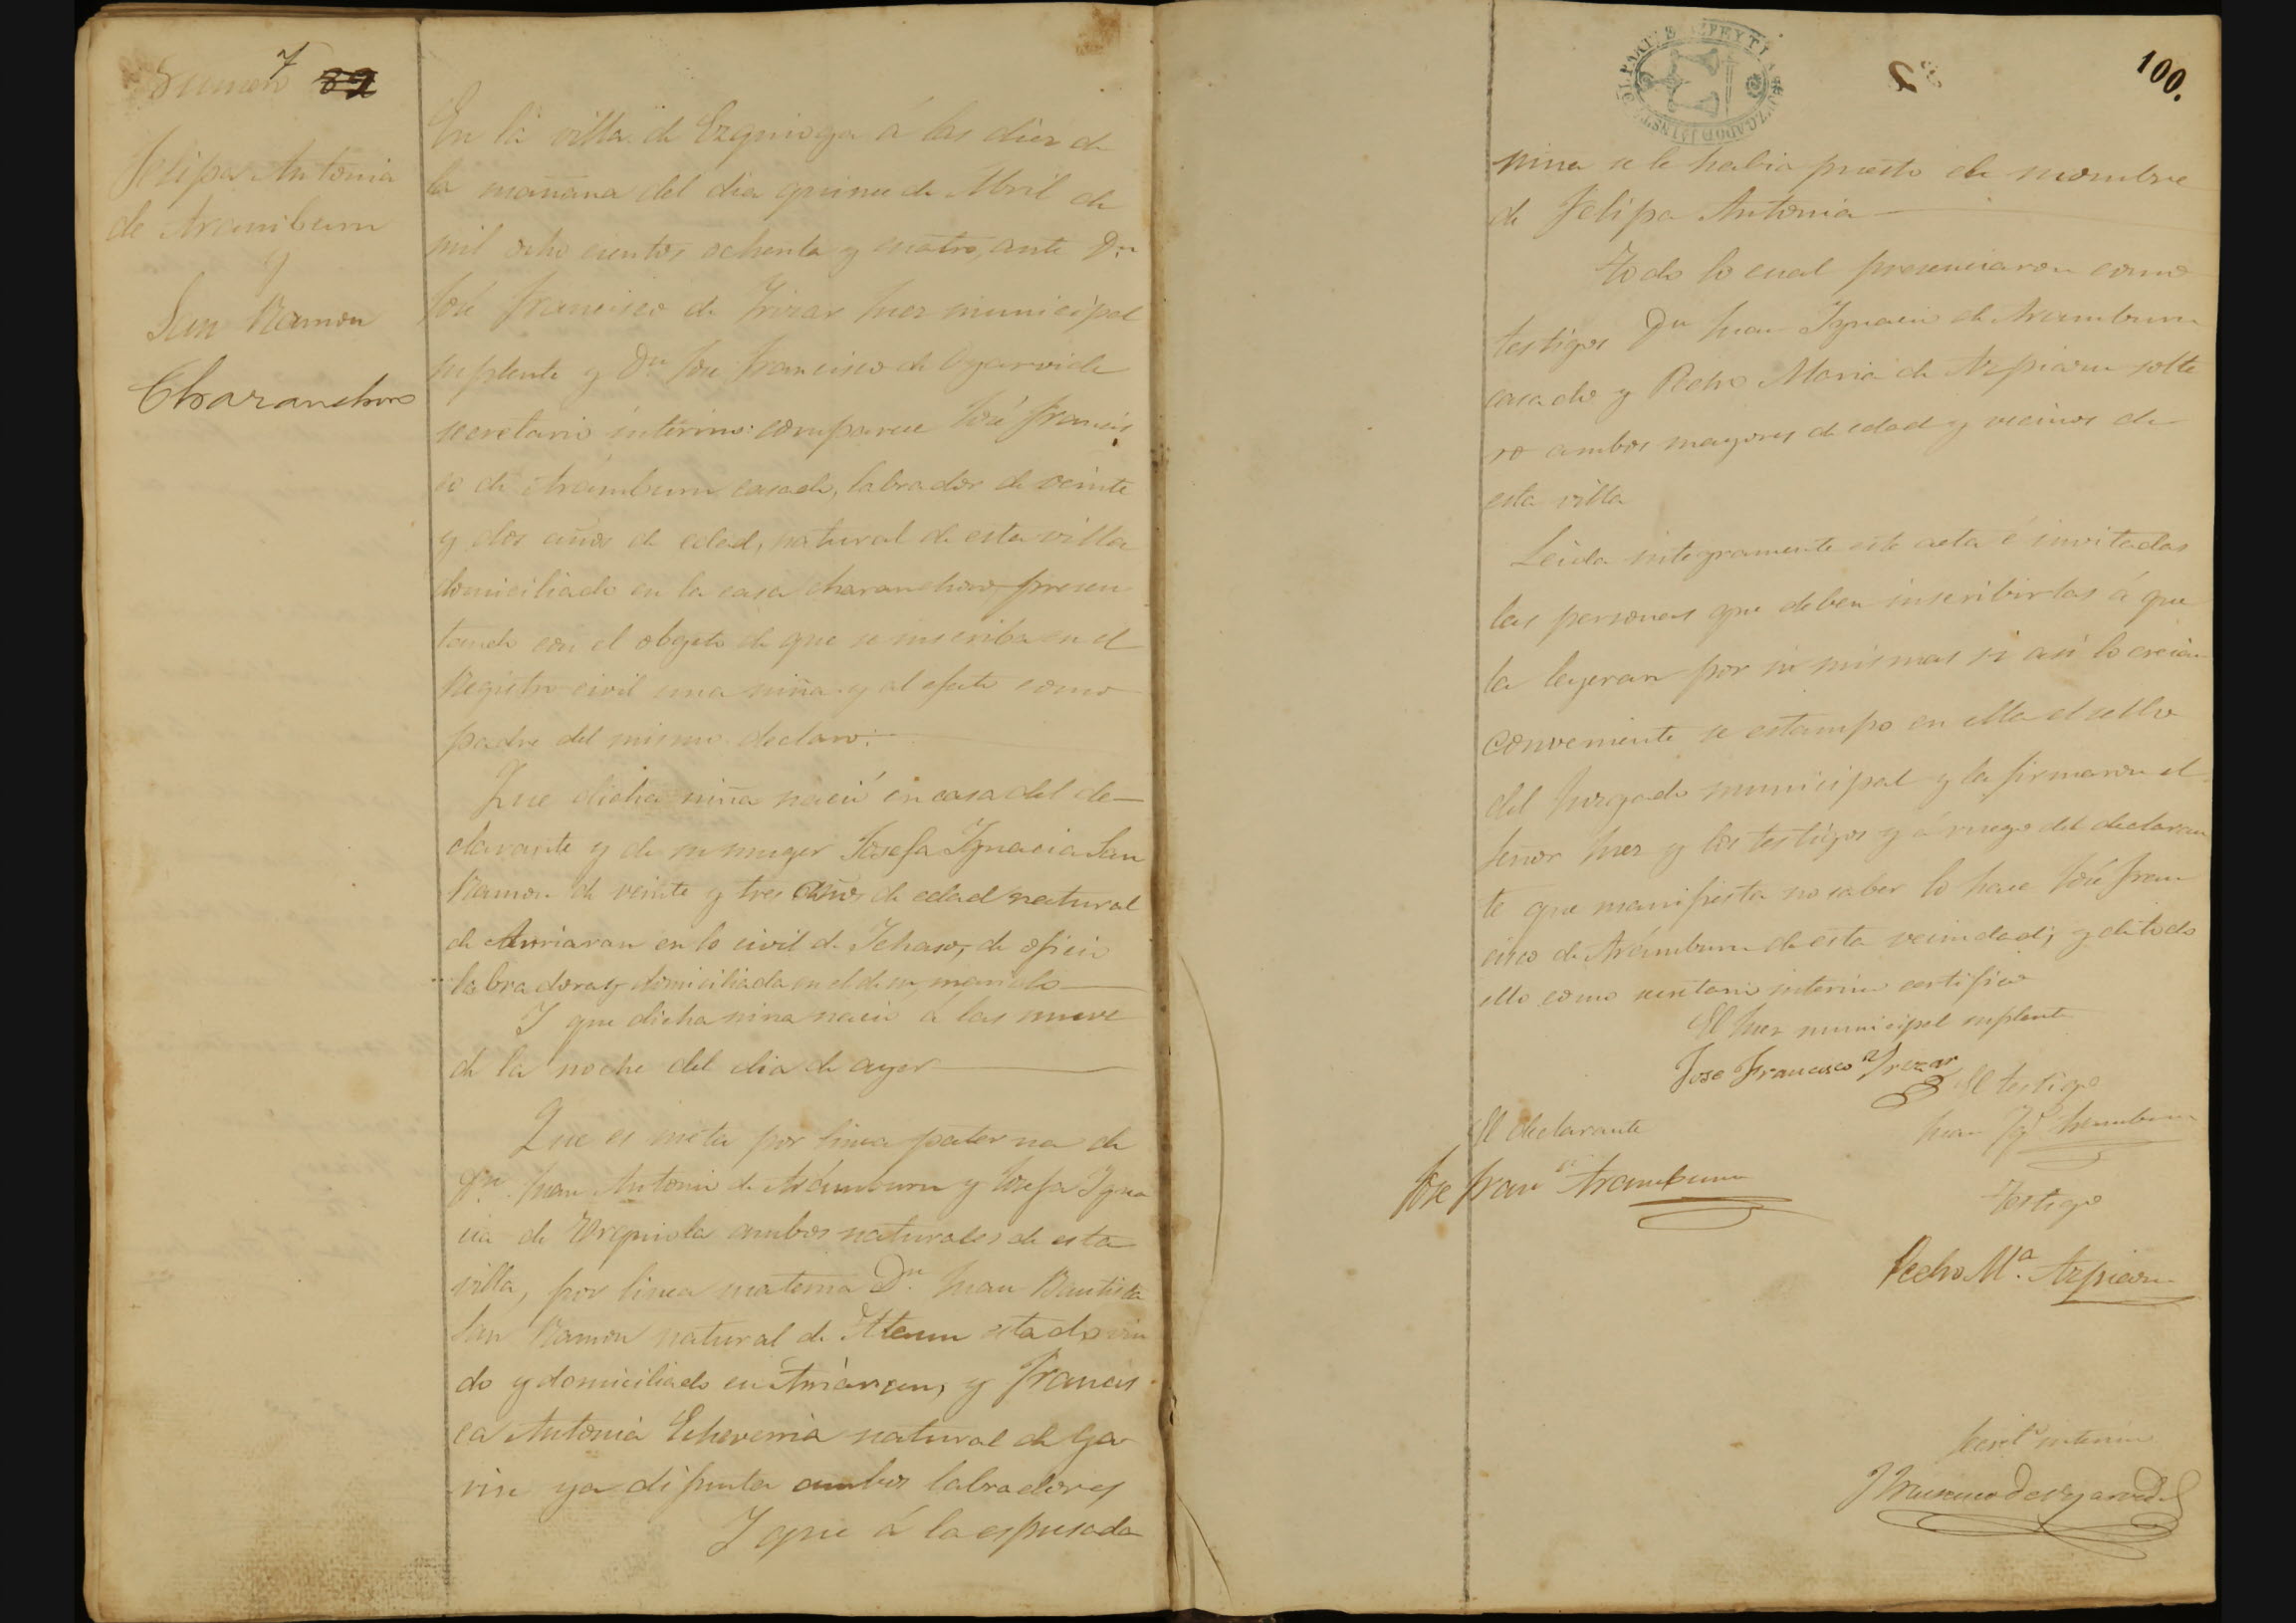 Numero 7 89
Felipa Antonia
de Aramburu
y
San Ramon
Charanchoco
En la villa de Ezquioga á las diez de
la mañana del dia quince de Abril de
mil ocho cientos ochenta y cuatro, ante Dn
José Francisco de Irizar Juez municipal
suplente y Dn José Francisco de Oyarvide
secretario interino: comparece José Francis
co de Aramburu casado, labrador de veinte
y dos años de edad, natural de esta villa
domiciliado en la casa charanchoco presen
tando con el objeto de que se inscriba en el
Registro civil una niña y al efecto como
padre del mismo declaro:
Que dicha niña nació en casa del de-
clarante y de su muger Josefa Ignacia San
Ramon de veinte y tres años de edad natural
de Arriaran en lo civil de Ichaso, de oficio
labradora y domiciliada en el de su marido
Y que dicha nina nació á las nueve
de la noche del dia de ayer
Que es nieta por linea paterna de
Dn Juan Antonio de Aramburu y Josefa Igna
cia de Urquiola ambos naturales de esta
villa, por linea materna Dn Juan Bautista
San Ramon natural de Ataun estado viu
do y domiciliado en Arriaran, y Francis
ca Antonia Echeverria natural de Ga
viria ya difunta ambos labradores
Y que á la espresada
100.
nina se le habia puesto el nombre
de Felipa Antonia
Todo lo cual presenciaron como
testigos Dn Juan Ignacio de Aramburu
casado y Pedro Maria de Azpiazu solte
ro ambos mayores de edad y vecinos de
esta villa
Leida integramente este acta é invitadas
las personas que deben inscribirlas á que
la leyeran por si mismas si asi lo creian
conveniente se estampo en ella el sello
del Juzgado municipal y la firmaron el
Señor Juez y los testigos y á ruego del declaran
te que manifiesta no saber lo hace José Fran
cisco de Aramburu de esta vecindad; y de todo
ello como secretario interino certifico
El Juez municipal suplente
Jose Francisco Yrezar
El testigo
El declarante
Juan Igo Aramburu
Jose Franco Aramburu
Testigo
Pedro Ma. Azpiazu
Secreto interino
J Francisco de Oyarvide